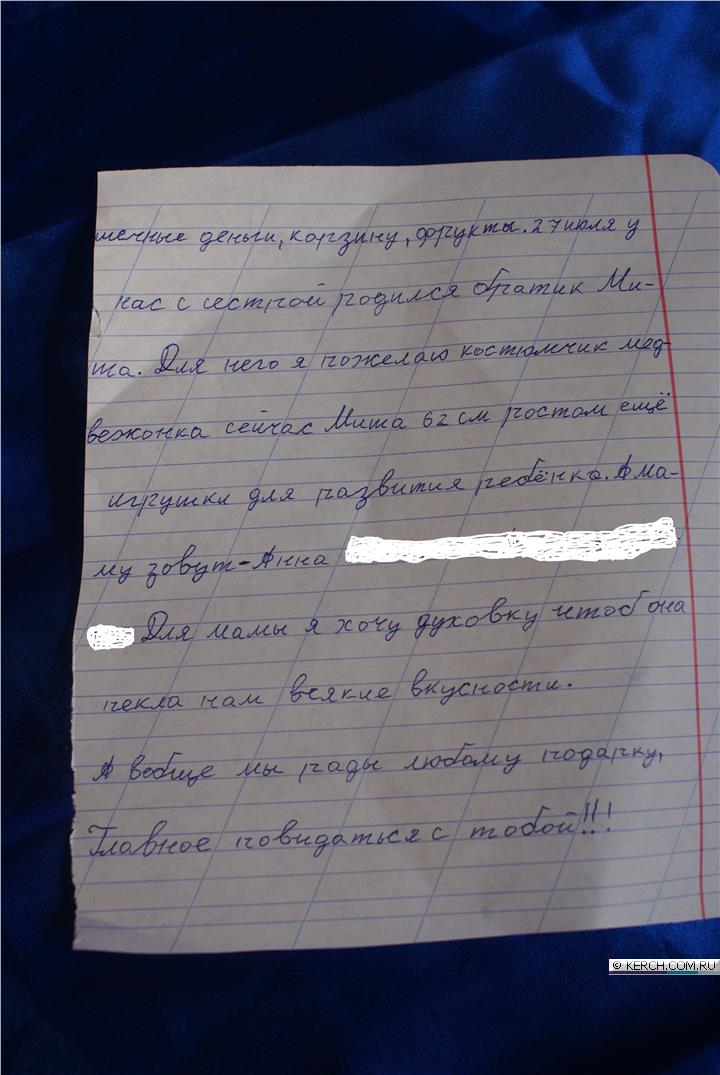 шечные деньги, корзину, фрукты. 27 июля у
нас с сестрой родился братик Ми-
ша. Для него я пожелаю костюмчик мед-
вежонка сейчас Миша 62 см ростом ещё
игрушки для развития ребёнка. А ма-
му зовут - Анна
Для мамы я хочу духовку чтоб она
пекла нам всякие вкусности.
А вобще мы рады любому подарку,
Главное повидаться с тобой!!!
© KERCH.COM.RU